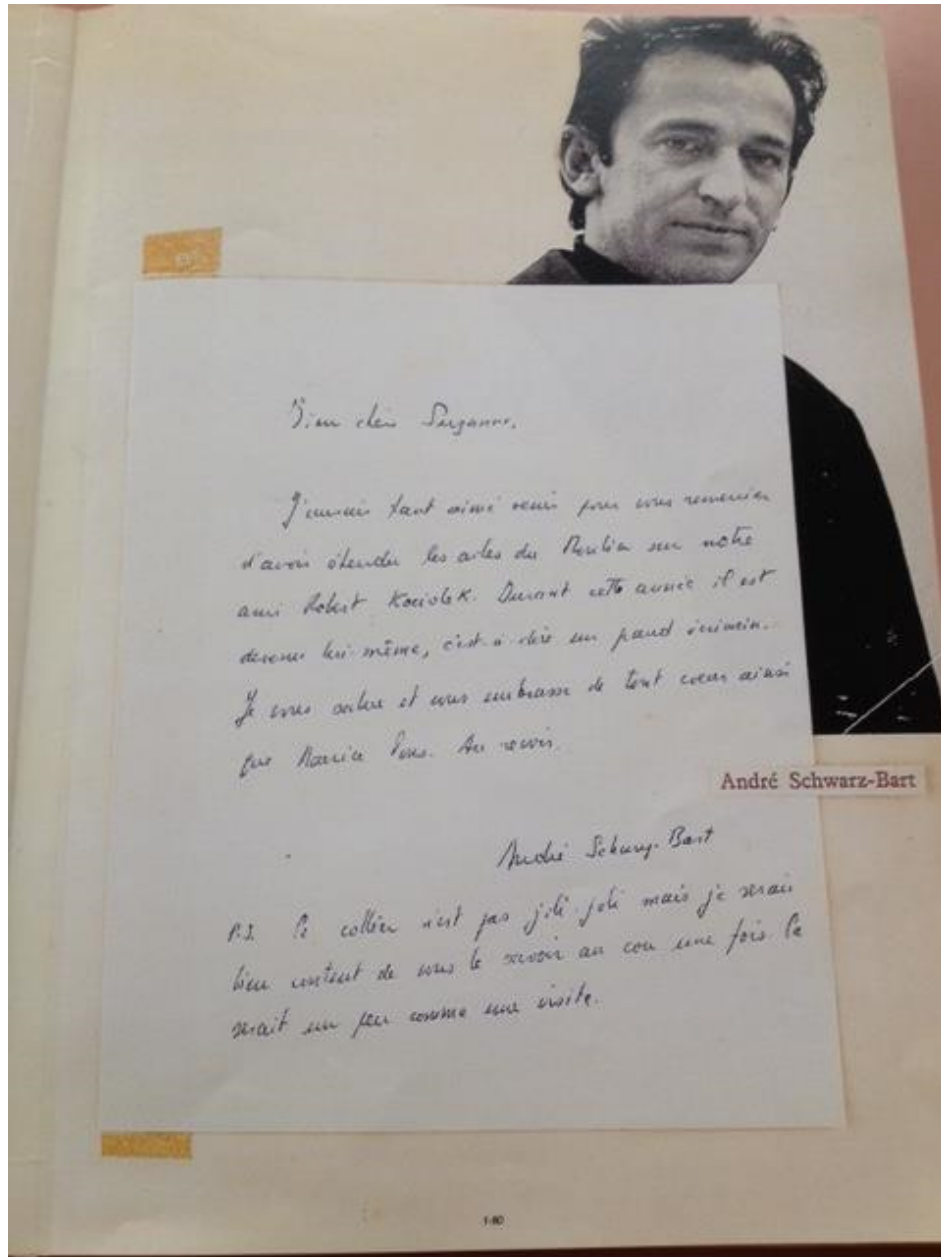 Bien chère Suzanne,
J'aurais tant aimé venir pour vous remercier
d'avoir étendu les ailes du Moulin sur notre
ami Robert Kociolek. Durant cette année il est
devenu lui-même, c'est-à-dire un grand écrivain.
Je vous salue et vous embrasse de tout cœur ainsi
que Maurice Pons. Au revoir.
André Schwarz-Bart
André Schwarz-Bart
P.S. Ce collier n'est pas joli-joli mais je serais
bien content de vous le savoir au cou une fois. Ce
serait un peu comme une visite.
1-80